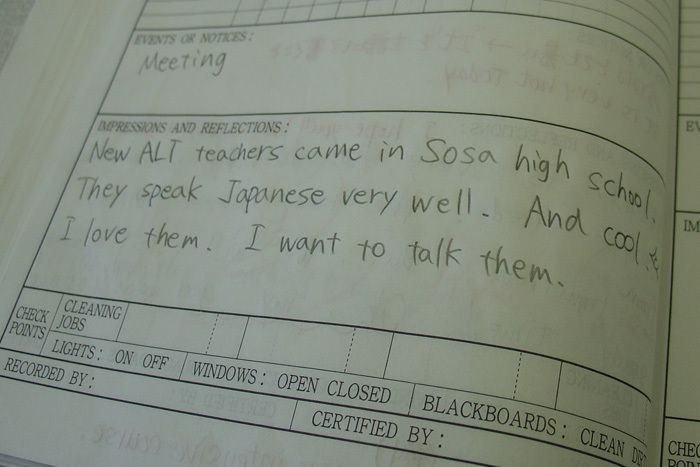 EVENTS OR NOTICES:
Meeting
IMPRESSIONS AND REFLECTIONS:
New ALT teachers came in Sosa high school.
They speak Japanese very well. And cool.
I love them. I want to talk them.
CHECK POINTS
CLEANING JOBS
LIGHTS: ON OFF
WINDOWS: OPEN CLOSED
BLACKBOARDS: CLEAN
RECORDED BY:
CERTIFIED BY: